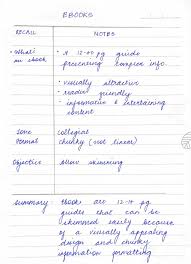 EBOOKS
RECALL NOTES
• What's an ebook
• A 12-20 pg guide
presenting complex info.
• visually attractive
• reader friendly
• informative & entertaining
content
Tone collegial
Format chunky (not linear)
Objective Allow skimming
Summary: Ebooks are 12-20 pg
guides that can be
skimmed easily because
of a visually appealing
design and chunky
information formatting